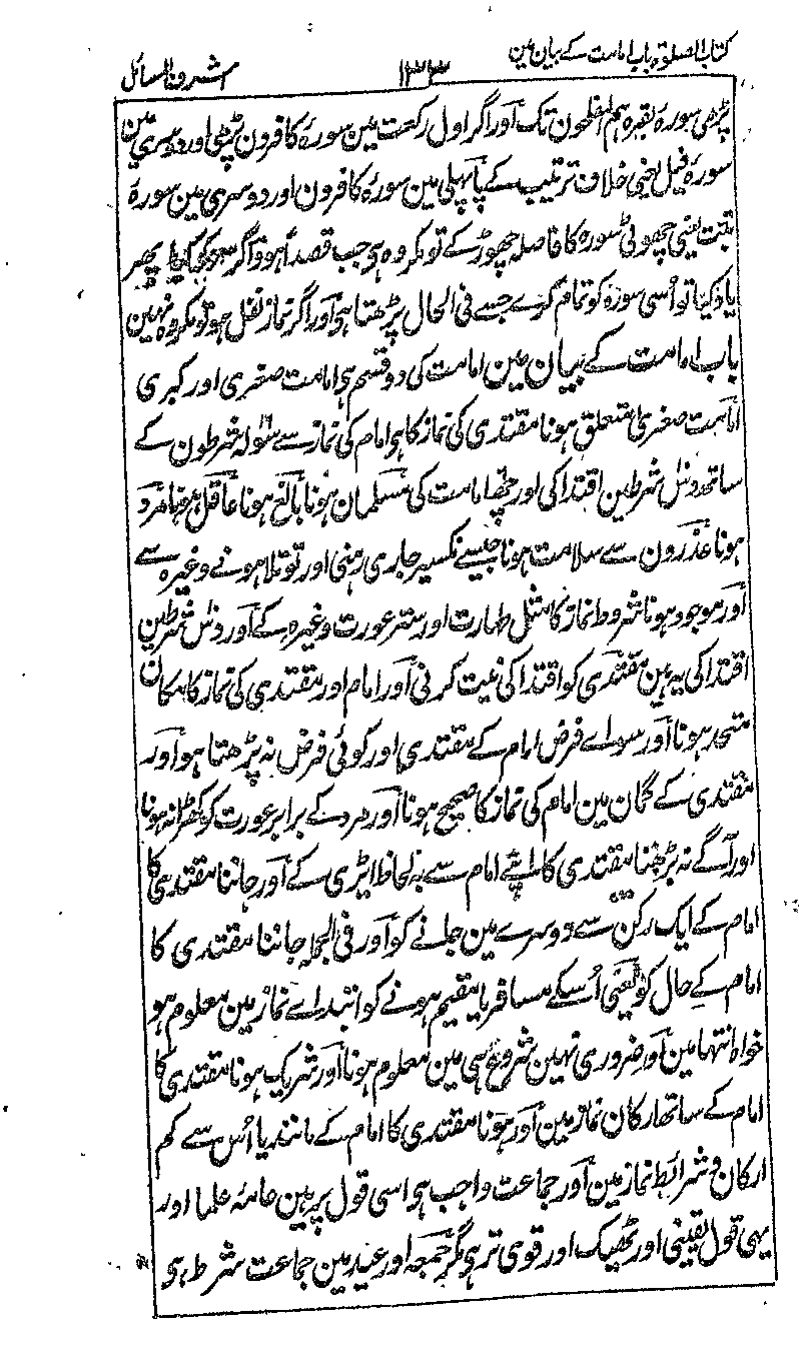 کتاب الصلوۃ باب امامت کے بیان مین ۱۳۳ اشرف المسائل
پڑھی سورۂ بقرہ ہم المفلحون تک اور اگر اول رکعت مین سورۂ کافرون پڑھی اور دوسری مین
سورۂ فیل یعنی خلاف ترتیب کے یا پہلی مین سورۂ کافرون اور دوسری مین سورۂ
تبت یعنی چھوٹی سورہ کا فاصلہ چھوڑ کے تو مکروہ ہی جب قصداً ہو و اگر سہو کیا پھر
یاد کیا تو اُسی سورہ کو تمام کرے جسے فی الحال پڑھتا ہی اور اگر نماز نفل ہو تو مکروہ نہین
باب امامت کے بیان مین امامت کی دو قسم ہی امامت صغری اور کبری
امامت صغری متعلق ہونا مقتدی کی نماز کا ہی امام کی نماز سے سولہ شرطون کے
ساتھ دس شرطین اقتدا کی اور چھ امامت کی مسلمان ہونا بالغ ہونا عاقل ہونا مرد
ہونا عذرون سے سلامت ہونا جیسے نکسیر جاری رہنی اور توتلا ہونے وغیرہ سے
اور موجود ہونا شروط نماز کا مثل طہارت اور ستر عورت وغیرہ کے اور دس شرطین
اقتدا کی یہ ہین مقتدی کو اقتدا کی نیت کرنی اور امام اور مقتدی کی نماز کا مکان
متحد ہونا اور سواے فرض امام کے مقتدی اور کوئی فرض نہ پڑھتا ہو اور
مقتدی کے گمان مین امام کی نماز کا صحیح ہونا اور مرد کے برابر عورت کو کھڑا نہونا
اور آگے نہ بڑھنا مقتدی کا اپنے امام سے بہ لحاظ ایڑی کے اور جاننا مقتدی کا
امام کے ایک رکن سے دوسرے مین جانے کو اور فی الجملہ جاننا مقتدی کا
امام کے حال کو یعنی اُسکے مسافر یا مقیم ہونے کو ابتداے نماز مین معلوم ہو
خواہ انتہا مین اور ضروری نہین شروع ہی مین معلوم ہونا اور شریک ہونا مقتدی کا
امام کے ساتھ ارکان نماز مین اور ہونا مقتدی کا امام کے مانند یا اُس سے کم
ارکان و شرائط نماز مین اور جماعت واجب ہی اسی قول پر ہین عامۂ علما اور
یہی قول یقینی اور ٹھیک اور قوی تر ہی مگر جمعہ اور عید مین جماعت شرط ہی